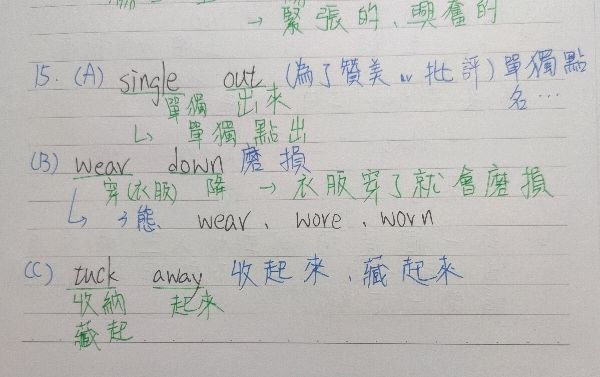 → 緊張的、興奮的
15. (A) single out (為了贊美 or 批評) 單獨點
單獨 出來 名...
↳ 單獨點出
(B) wear down 磨損
穿(衣服) 降 → 衣服穿了就會磨損
↳ 3態 wear、wore、worn
(C) tuck away 收起來、藏起來
收納 起來
藏起